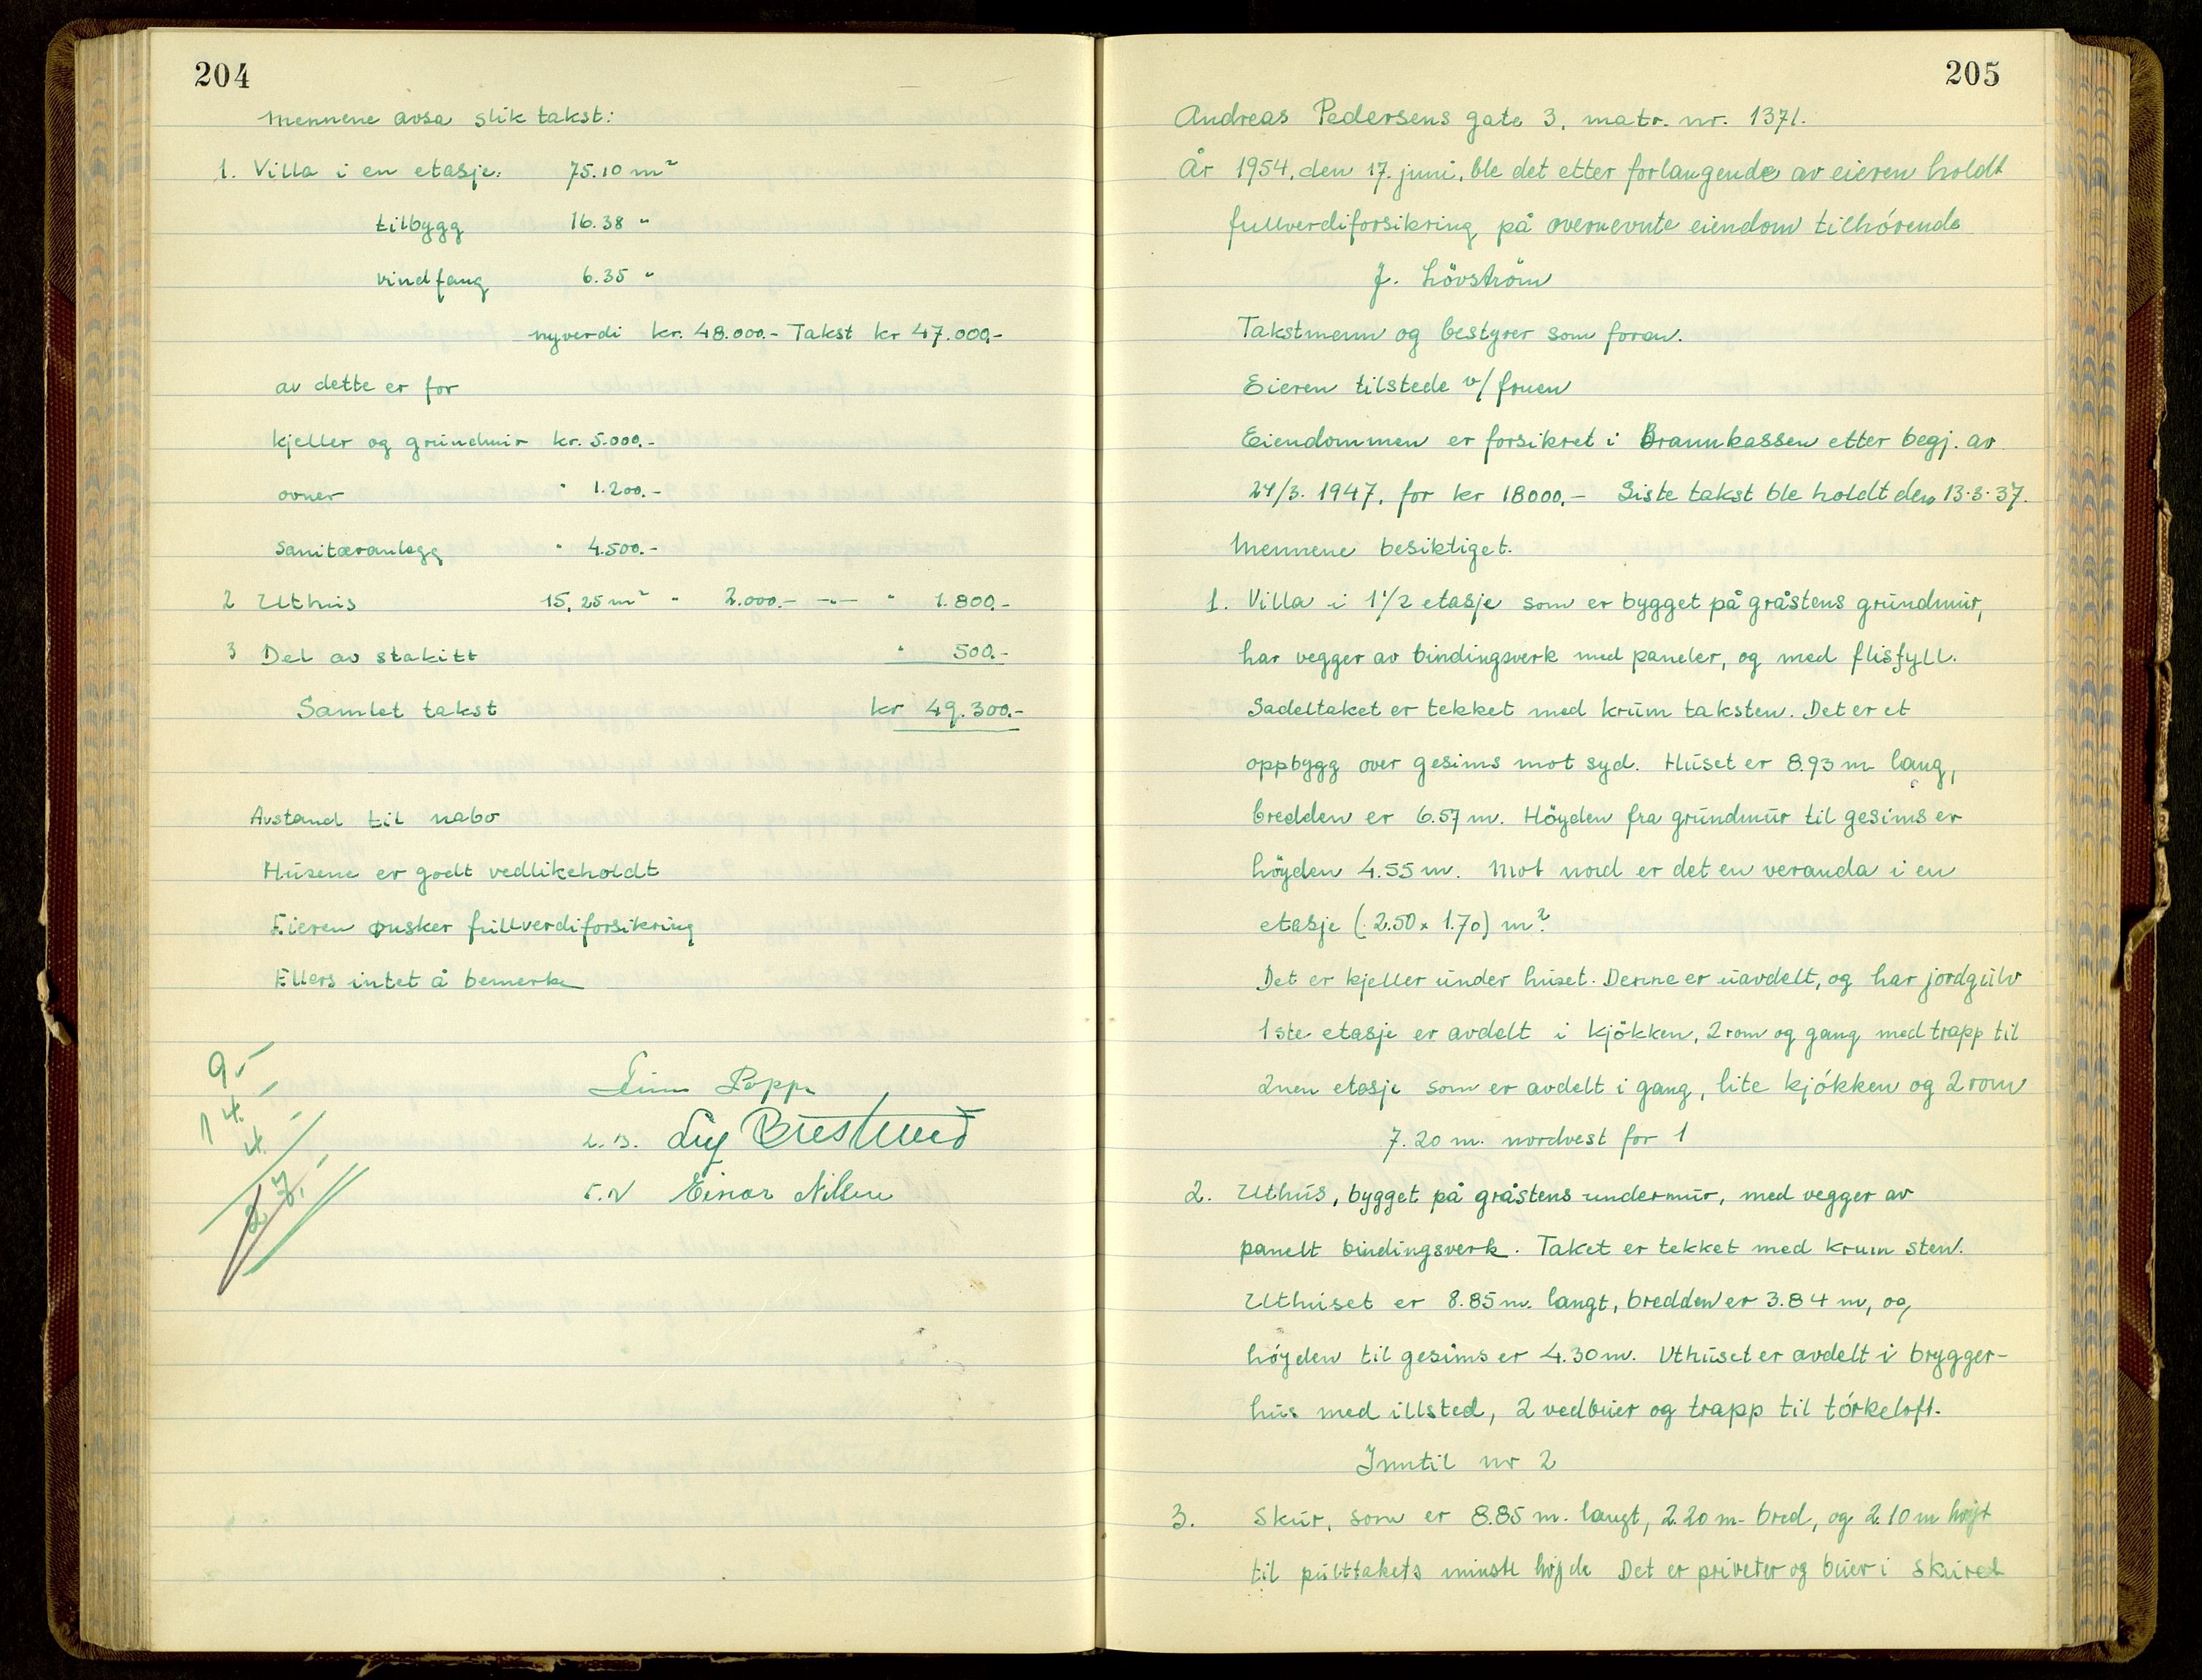 204
Mennene avsa slik takst:
1. Villa i en etasje. 75.10 m²
tilbygg 16.38 "
vindfang 6.35 "
nyverdi kr. 48.000.- Takst kr 47.000,-
av dette er for
kjeller og grundmur kr. 5.000.-
ovner " 1.200.-
Sanitæranlegg " 4.500.-
2 Uthus 15,25 m² " 2.000.- -"- " 1.800.-
3 Del av stakitt " 500.-
Samlet takst kr 49.300.-
Avstand til nabo
Husene er godt vedlikeholdt
Eieren ønsker fullverdiforsikring
Ellers intet å bemerke
9 -
14. -
4. -
27. -
Popp
Einar Nilsen
205
Andreas Pedersens gate 3, matr. nr. 1371.
År 1954, den 17. juni, ble det etter forlangende av eieren holdt
fullverdiforsikring på overnevnte eiendom tilhörende
J. Lövström
Takstmenn og bestyrer som foran.
Eieren tilstede v/ fruen
Eiendommen er forsikret i Brannkassen etter begj. av
24/3. 1947, for kr 18000.- Siste takst ble holdt den 13.3.37.
Mennene besiktiget.
1. Villa i 1 1/2 etasje som er bygget på gråstens grundmur,
har vegger av bindingsverk med paneler, og med flisfyll.
Sadeltaket er tekket med krum taksten. Det er et
oppbygg over gesims mot syd. Huset er 8.93 m lang,
bredden er 6.57 m. Höyden fra grundmur til gesims er
höyden 4.55 m. Mot nord er det en veranda i en
etasje (2.50 x 1.70) m².
Det er kjeller under huset. Denne er uavdelt, og har jordgulv
1ste etasje er avdelt i kjökken, 2 rom og gang med trapp til
2nen etasje som er avdelt i gang, lite kjökken og 2 rom
7.20 m. nordvest for 1
2. Uthus, bygget på gråstens undermur, med vegger av
panelt bindingsverk. Taket er tekket med krum sten.
Uthuset er 8.85 m. langt, bredden er 3.84 m, og
höyden til gesims er 4.30 m. Uthuset er avdelt i brygger-
hus med illsted, 2 vedbuer og trapp til törkeloft.
Inntil nr 2
3. Skur, som er 8.85 m. langt, 2.20 m. bred, og 2.10 m höyt
til pulttakets minste höyde Det er priveter og buer i skuret